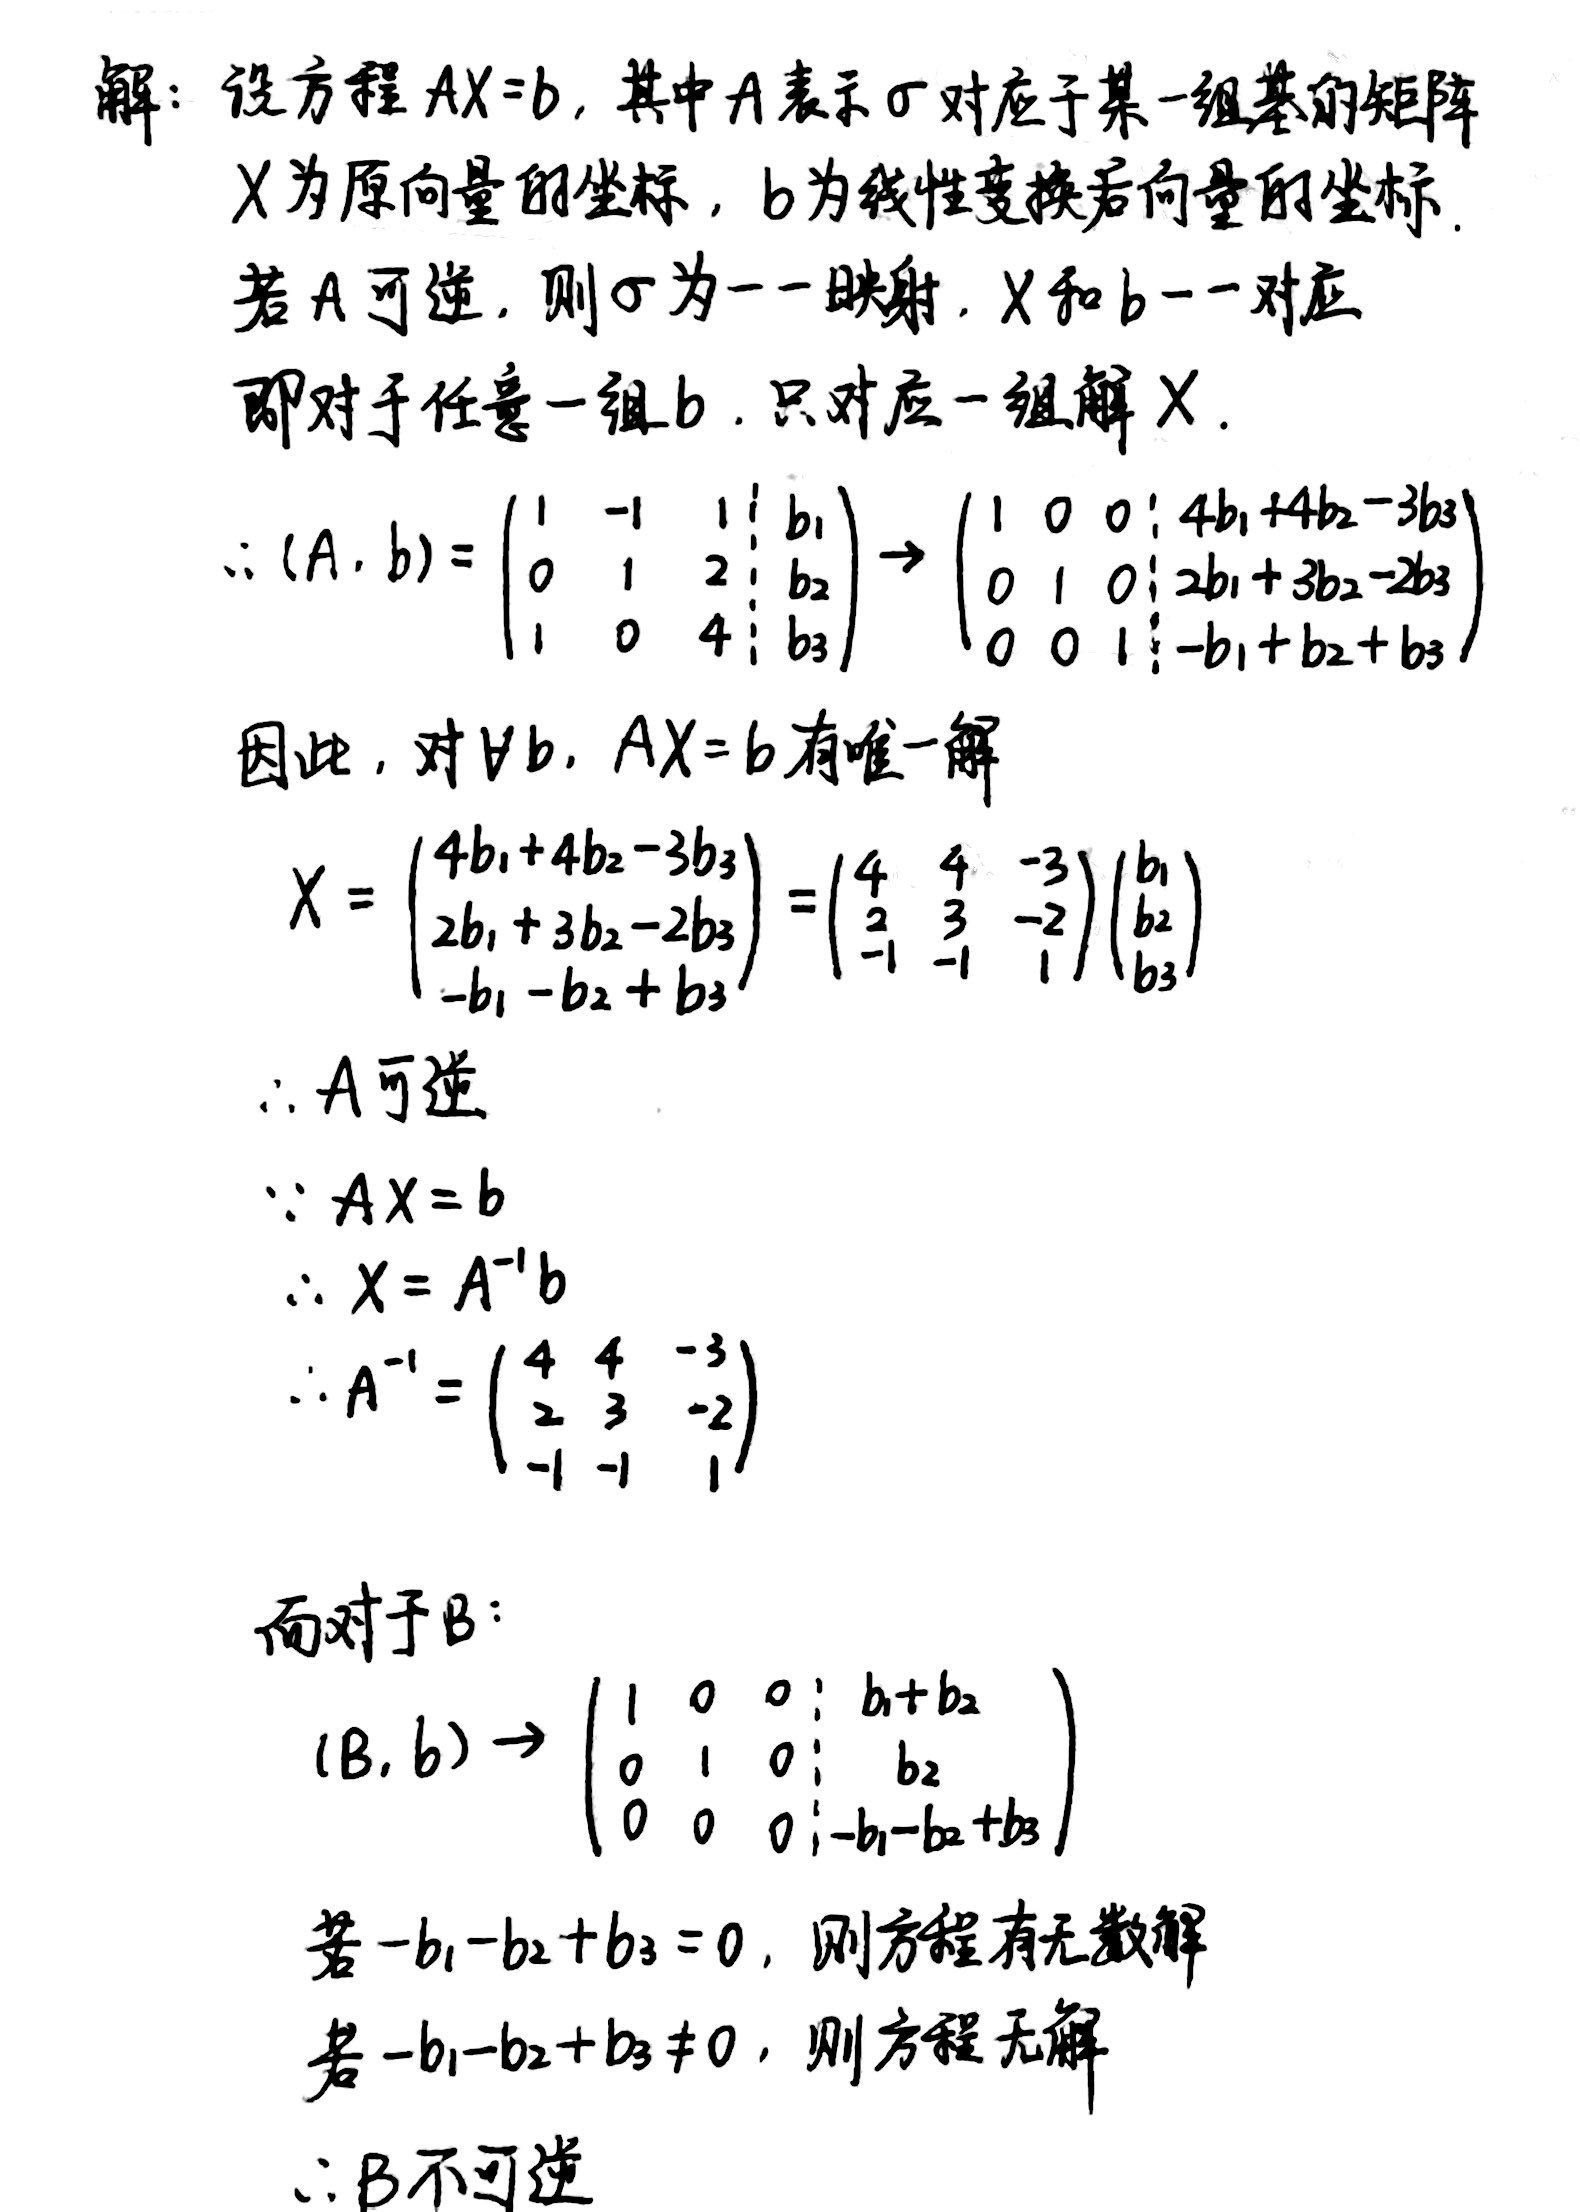 解：设方程 AX=b，其中A表示σ对应于某一组基的矩阵
X为原向量的坐标，b为线性变换后向量的坐标.
若A可逆，则σ为一一映射，X和b一一对应
即对于任意一组b，只对应一组解X.
∴(A, b) = ( 1 -1 1 ¦ b₁ ; 0 1 2 ¦ b₂ ; 1 0 4 ¦ b₃ ) → ( 1 0 0 ¦ 4b₁+4b₂-3b₃ ; 0 1 0 ¦ 2b₁+3b₂-2b₃ ; 0 0 1 ¦ -b₁+b₂+b₃ )
因此，对∀b，AX=b有唯一解
X = ( 4b₁+4b₂-3b₃ ; 2b₁+3b₂-2b₃ ; -b₁-b₂+b₃ ) = ( 4 4 -3 ; 2 3 -2 ; -1 -1 1 )( b₁ ; b₂ ; b₃ )
∴ A可逆
∵ AX=b
∴ X=A⁻¹b
∴ A⁻¹ = ( 4 4 -3 ; 2 3 -2 ; -1 -1 1 )
而对于B：
(B, b) → ( 1 0 0 ¦ b₁+b₂ ; 0 1 0 ¦ b₂ ; 0 0 0 ¦ -b₁-b₂+b₃ )
若 -b₁-b₂+b₃=0，则方程有无数解
若 -b₁-b₂+b₃≠0，则方程无解
∴B不可逆